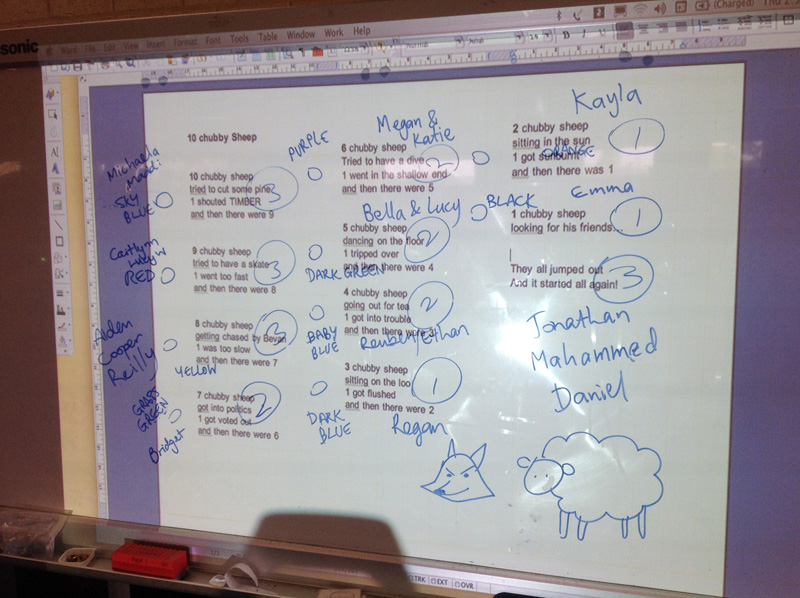 sonic
Word File Edit View Insert Format Font Tools Table Window Work Help
(Charged) Thu 2
10 chubby Sheep
Michaela
SKY
BLUE
10 chubby sheep
tried to cut some pine
1 shouted TIMBER
and then there were 9
3
Caitlynn
RED
9 chubby sheep
tried to have a skate
1 went too fast
and then there were 8
3
Aiden
Cooper
Reilly
YELLOW
8 chubby sheep
getting chased by Bevan
1 was too slow
and then there were 7
3
GRASS
GREEN
Bridget
7 chubby sheep
got into politics
1 got voted out
and then there were 6
2
PURPLE
Megan &
Katie
6 chubby sheep
Tried to have a dive
1 went in the shallow end
and then there were 5
2
Bella & Lucy
5 chubby sheep
dancing on the floor
1 tripped over
and then there were 4
2
DARK GREEN
4 chubby sheep
going out for tea
1 got into trouble
and then there were 3
2
BABY
BLUE
Reuben/Ethan
3 chubby sheep
sitting on the loo
1 got flushed
and then there were 2
1
DARK
BLUE
Regan
Kayla
2 chubby sheep
sitting in the sun
1 got sunburnt
and then there was 1
1
ORANGE
BLACK
Emma
1 chubby sheep
looking for his friends...
1
They all jumped out
And it started all again!
3
Jonathan
Mahammed
Daniel
TRK EXT OVR